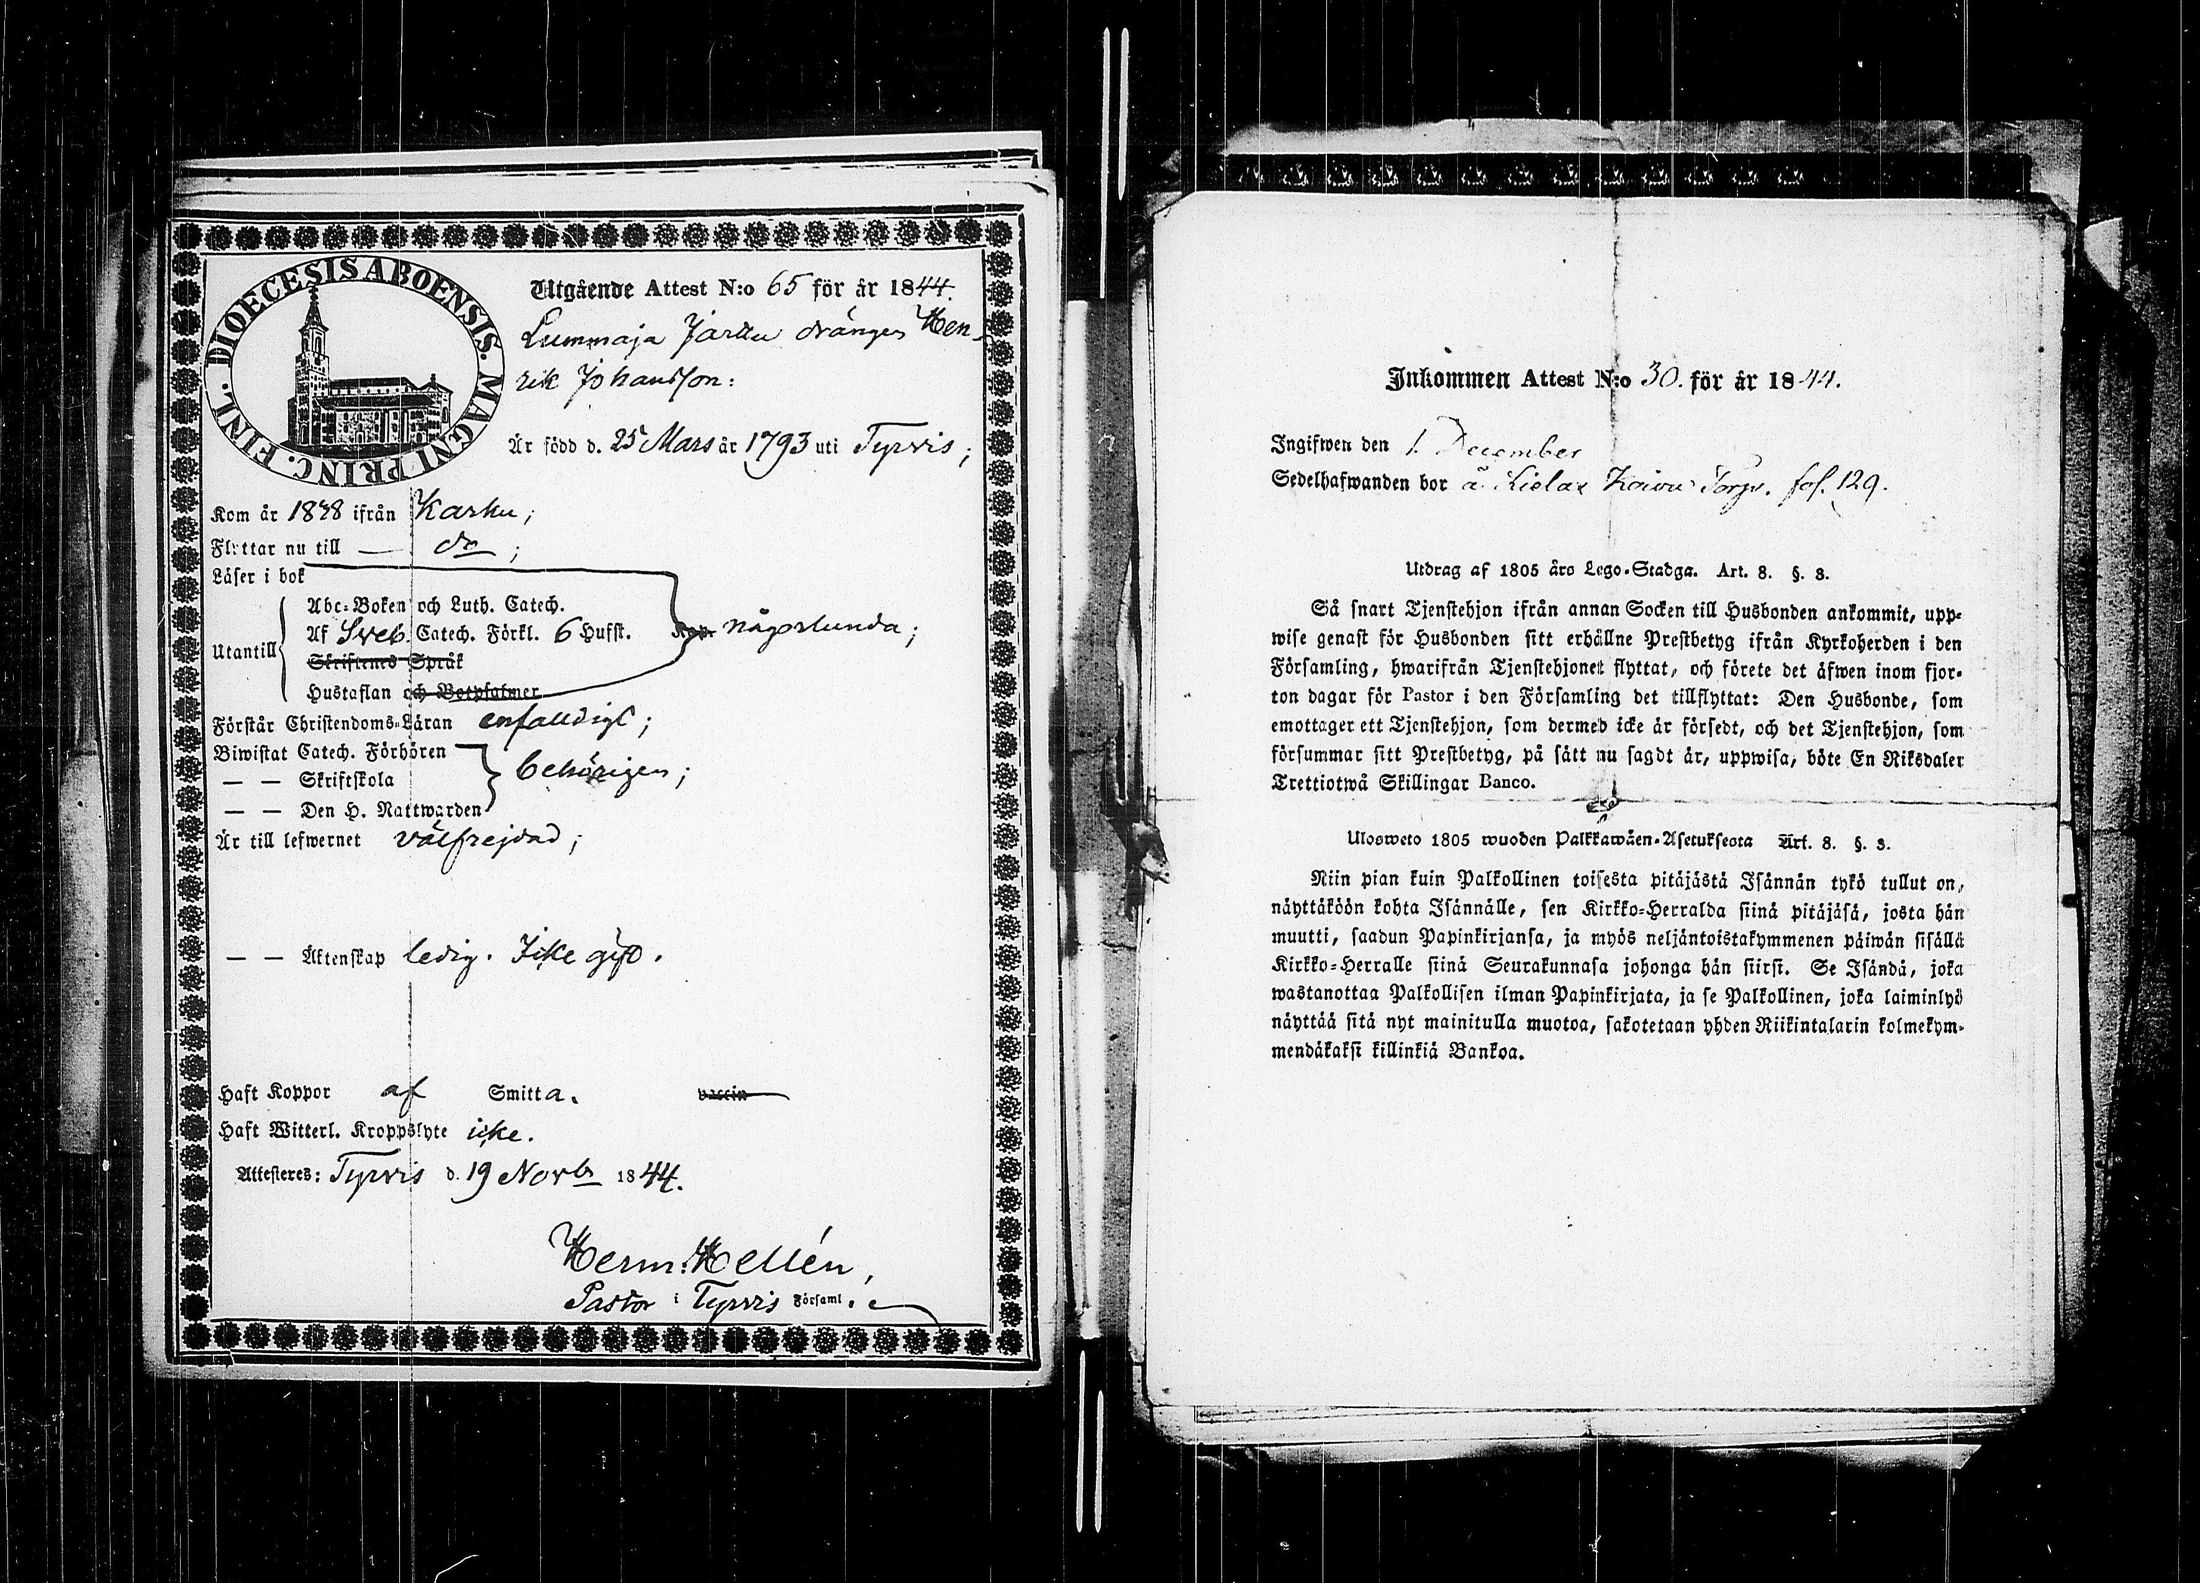 DIOECESIS ABOENSIS. MAGNI PRINC. FINL.
Utgående Attest N:o 65 för år 1844.
Lummaja Jaska drängen Hen-
rik Johansson:
Är född d. 25 Mars år 1793 uti Tyrvis;
Kom år 1838 ifrån Karku;
Flyttar nu till — do;
Läser i bok
Abc-Boken och Luth. Catech.
Af Sveb. Catech. Förkl. 6 Hufst. någorlunda;
Utantill
Skriftenes Språk
Hustaflan och Botpsalmer
Förstår Christendoms-Läran enfaldigt;
Biwistat Catech. Förhören
— — Skriftskola behörigen;
— — Den H. Nattwarden
Är till lefwernet välfrejdad;
— — Äktenskap ledig. Icke gift.
Haft Koppor af Smitta. vaccin
Haft Witterl. Kroppslyte icke.
Attesteres: Tyrvis d. 19 Novbr 1844.
Herm: Hellén,
Pastor i Tyrvis Församl.
Inkommen Attest N:o 30. för år 1844.
Ingifwen den 1. December
Sedelhafwanden bor å Torp. fol. 129.
Utdrag af 1805 års Lego-Stadga. Art. 8. §. 3.
Så snart Tjenstehjon ifrån annan Socken till Husbonden ankommit, upp-
wise genast för Husbonden sitt erhållne Prestbetyg ifrån Kyrkoherden i den
Församling, hwarifrån Tjenstehjonet flyttat, och förete det äfwen inom fjor-
ton dagar för Pastor i den Församling det tillflyttat: Den Husbonde, som
emottager ett Tjenstehjon, som dermed icke är försedt, och det Tjenstehjon, som
försummar sitt Prestbetyg, på sätt nu sagdt är, uppwisa, böte En Riksdaler
Trettiotwå Skillingar Banco.
Ulosweto 1805 wuoden Palkkawäen-Asetuksesta Art. 8. §. 3.
Niin pian kuin Palkollinen toisesta pitäjästä Isännän tykö tullut on,
näyttäköön kohta Isännälle, sen Kirkko-Herralda siinä pitäjäsä, josta hän
muutti, saadun Papinkirjansa, ja myös neljäntoistakymmenen päiwän sisällä
Kirkko-Herralle siinä Seurakunnasa johonga hän siirsi. Se Isändä, joka
wastanottaa Palkollisen ilman Papinkirjata, ja se Palkollinen, joka laiminlyö
näyttää sitä nyt mainitulla muotoa, sakotetaan yhden Riikintalarin kolmekym-
mendäkaksi killinkiä Bankoa.